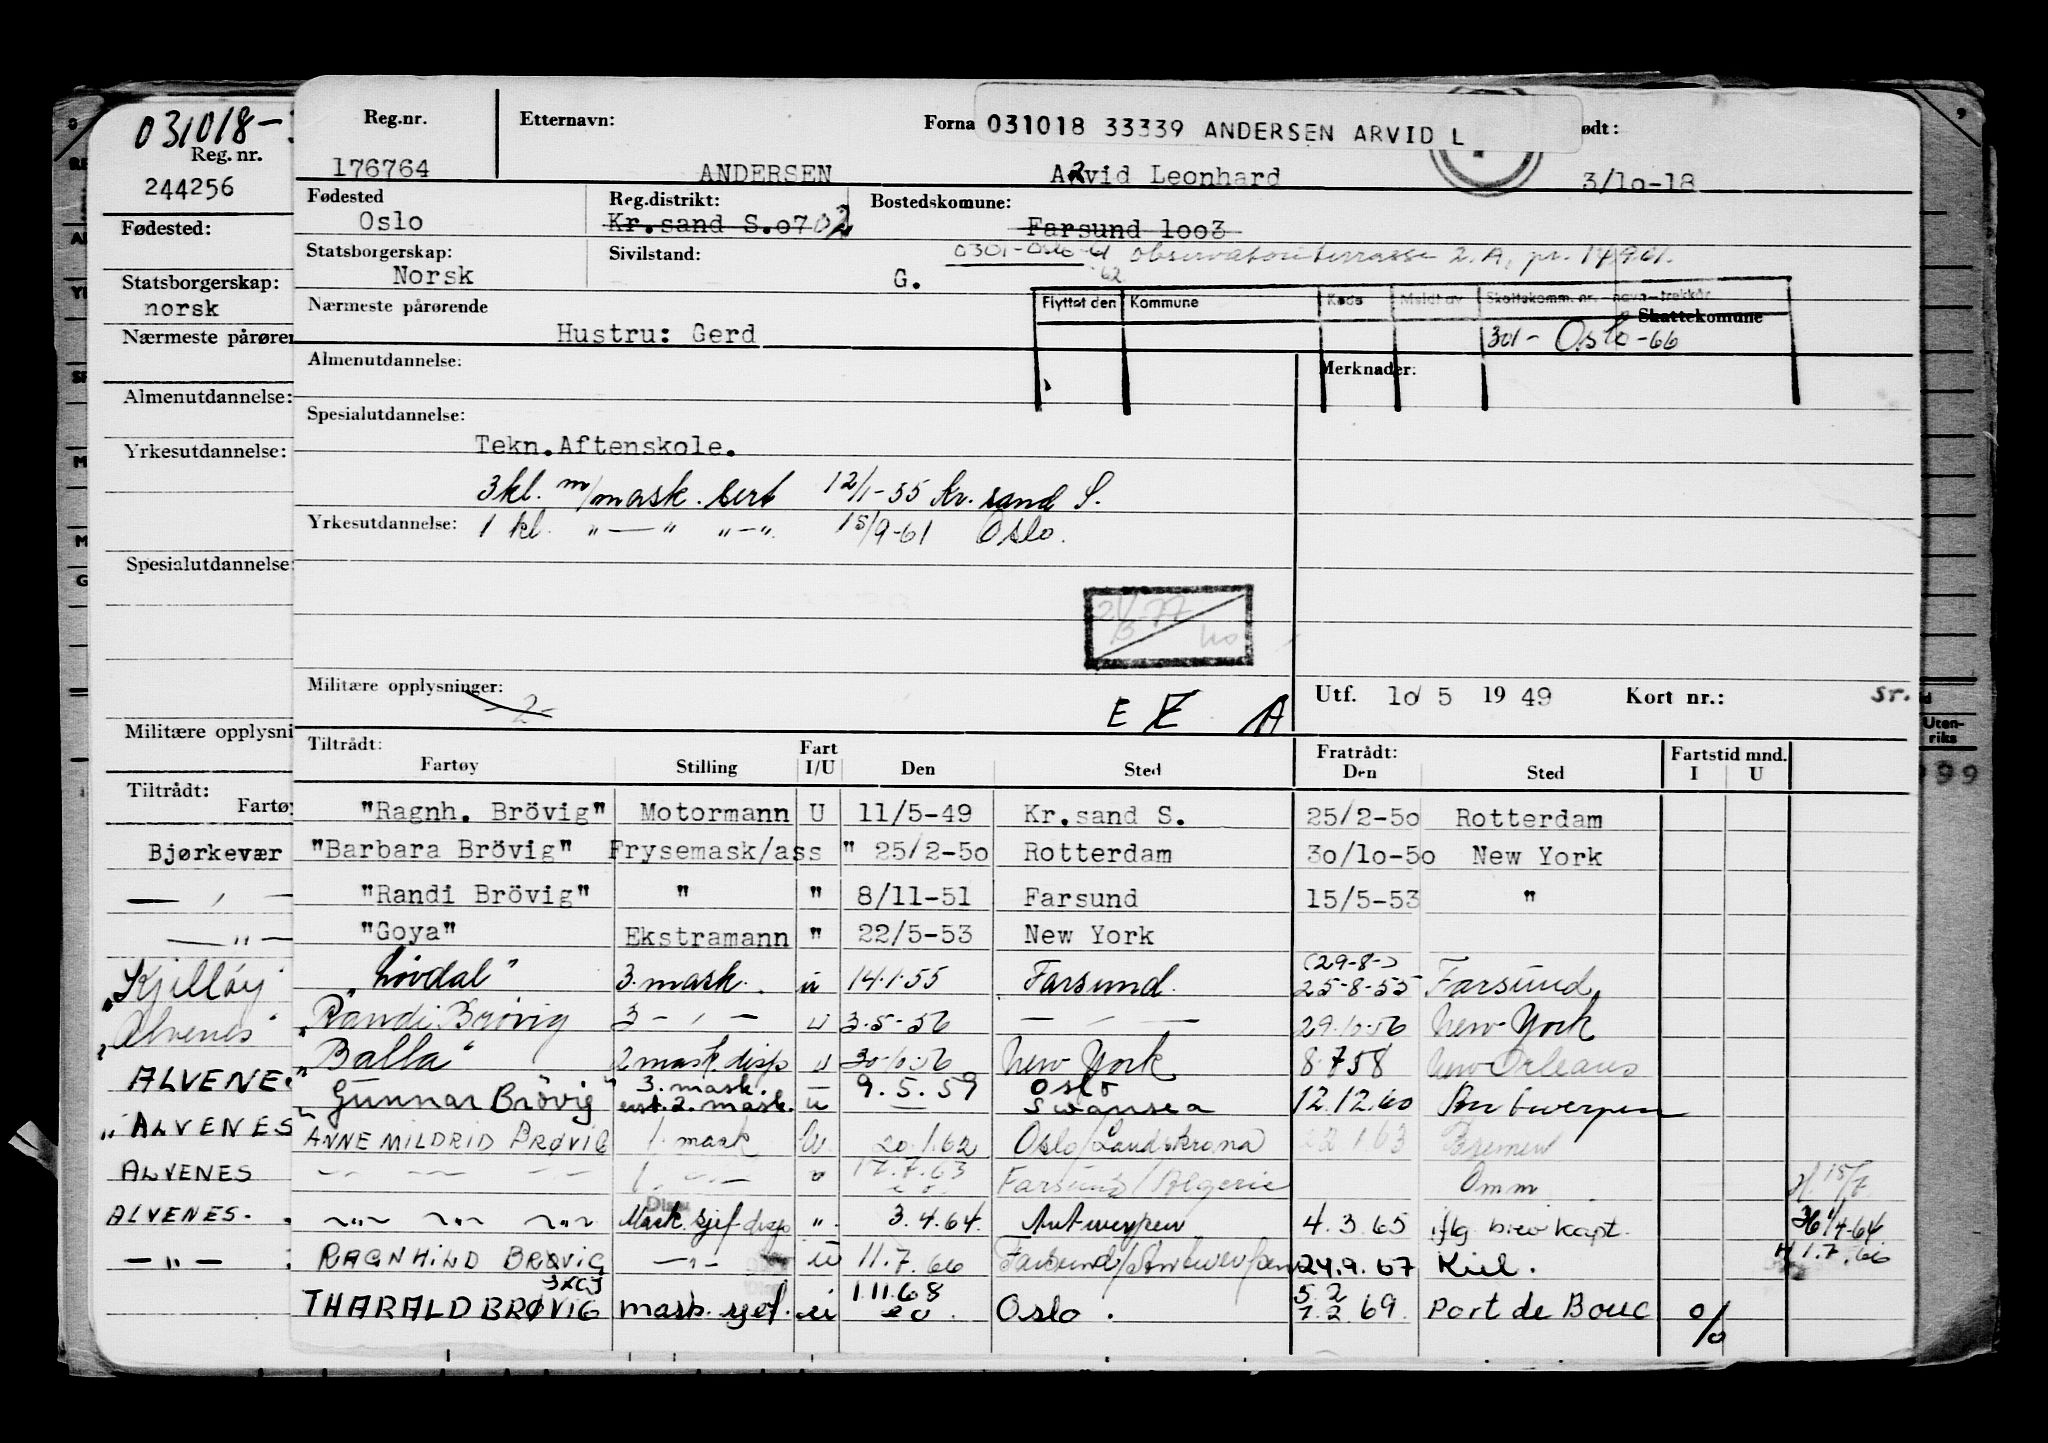 031018-
Reg. nr.
244256
Fødested:
Statsborgerskap:
norsk
Nærmeste pårøren
Almenutdannelse:
Yrkesutdannelse:
Spesialutdannelse:
Militære opplysni
Tiltrådt:
Fartøy
Bjørkevær
— „ —
— „ —
"Kjelløy
"Alvenes"
ALVENES
"ALVENES
ALVENES
ALVENES.
— „ —
Reg.nr. Etternavn: Forna 031018 33339 ANDERSEN ARVID L ødt:
176764 ANDERSEN Arvid Leonhard 3/10-18
Fødested Reg.distrikt: Bostedskomune:
Oslo Kr.sand S.0702 Farsund 1003
0301-Oslo-61 Observatorieterrasse 2.A, pr. 14961.
62
Statsborgerskap: Sivilstand:
Norsk G.
Flyttet den Kommune Kode Meldt av Skattekomm. nr. - navn - trekkår
Nærmeste pårørende Skattekomune
Hustru: Gerd 301- Oslo-66
Almenutdannelse: Merknader:
Spesialutdannelse:
Tekn.Aftenskole.
3kl. m/mask. sert 12/1-55 Kr. sand S.
Yrkesutdannelse: 1 kl. „—„ „—„ 15/9-61 Oslo.
Militære opplysninger: -2-
E E A
Utf. 10/ 5 19 49 Kort nr.: sr.
Uten-
riks
99
Tiltrådt: Fart Fratrådt: Fartstid mnd.
Fartøy Stilling I/U Den Sted Den Sted I U
"Ragnh. Brövig" Motormann U 11/5-49 Kr.sand S. 25/2-50 Rotterdam
"Barbara Brövig" Frysemask/ass " 25/2-50 Rotterdam 30/10-50 New York
"Randi Brövig" " " 8/11-51 Farsund 15/5-53 "
"Goya" Ekstramann " 22/5-53 New York
"Lövdal" 3. mask. u 14.1.55 Farsund. (29-8-) 25-8-55 Farsund
"Randi Brövig 3 - „ - u 3.5-56 — „ — 29.10.56 New York
"Balla" 2 mask. disp u 30-10-56 New York 8.7 58 New Orleans
"Gunnar Brövig" 3. mask. — 9.5.59 Oslo
enst. 2. mask. u — Swansea 12.12.60 Antwerpen
ANNE MILDRID BRØVIG 1. mask U. 20.1.62 Oslo/Landskrona 22 1.63 Bremen
— — — — 1. —„— u 17.7.63 Farsund/Algerie Omm. 15/7
—„— —„— —„— Mask. sjef disp „. 3.4.64. Antwerpen 4.3.65 iflg brev kapt. 1/4-64
RAGNHILD BRØVIG —„— u 11.7.66 Farsund/Antwerpen 24.9.67 Kiel. 1.7.66
THARALD BRØVIG mask. sjef. u 1.11.68 Oslo. 5.2 7.2.69. Port de Bouc %